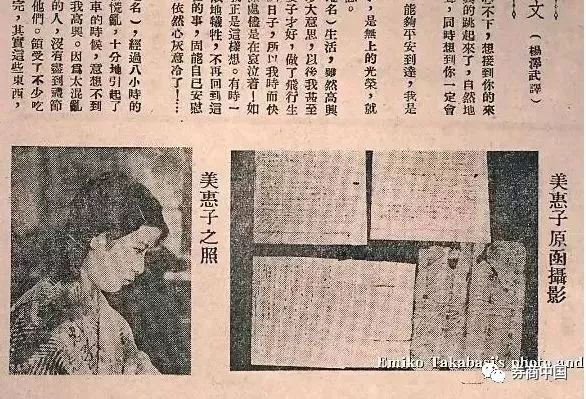 文
(楊澤武譯)
心不下，想接到你的來
的跳起來了，自然地
，同時想到你一定會
能夠平安到達，我是
，是無上的光榮，就
名）生活，雖然高興
大意思，以後我甚至
子才好，做了飛行生
日子，所以我時而快
處儘是在哀泣着！如
正是這樣想。有時一
地犧牲，不再回到這
的事，固能自己安慰
依然心灰意冷了！…
名），經過八小時的
慌亂，十分地引起了
車的時候，意想不到
我高興。因爲太混亂
的人，沒有盡到禮節
他們。領受了不少吃
完，其實這些東西，
美惠子原函攝影
美惠子之照
Emiko Takabasi's photo and
券商中国